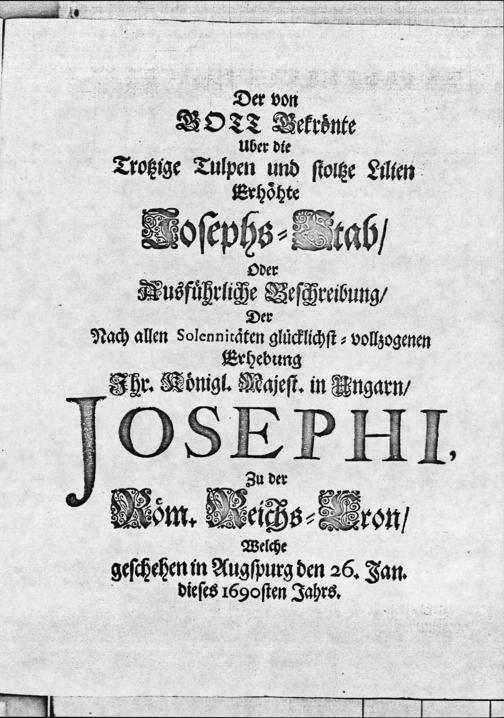 Der von
GOTT Gekrönte
Uber die
Trotzige Tulpen und stoltze Lilien
Erhöhte
Josephs-Stab/
Oder
Ausführliche Beschreibung/
Der
Nach allen Solennitäten glücklichst-vollzogenen
Erhebung
Ihr. Königl. Majest. in Ungarn/
JOSEPHI,
Zu der
Röm. Reichs-Cron/
Welche
geschehen in Augspurg den 26. Jan.
dieses 1690sten Jahrs.